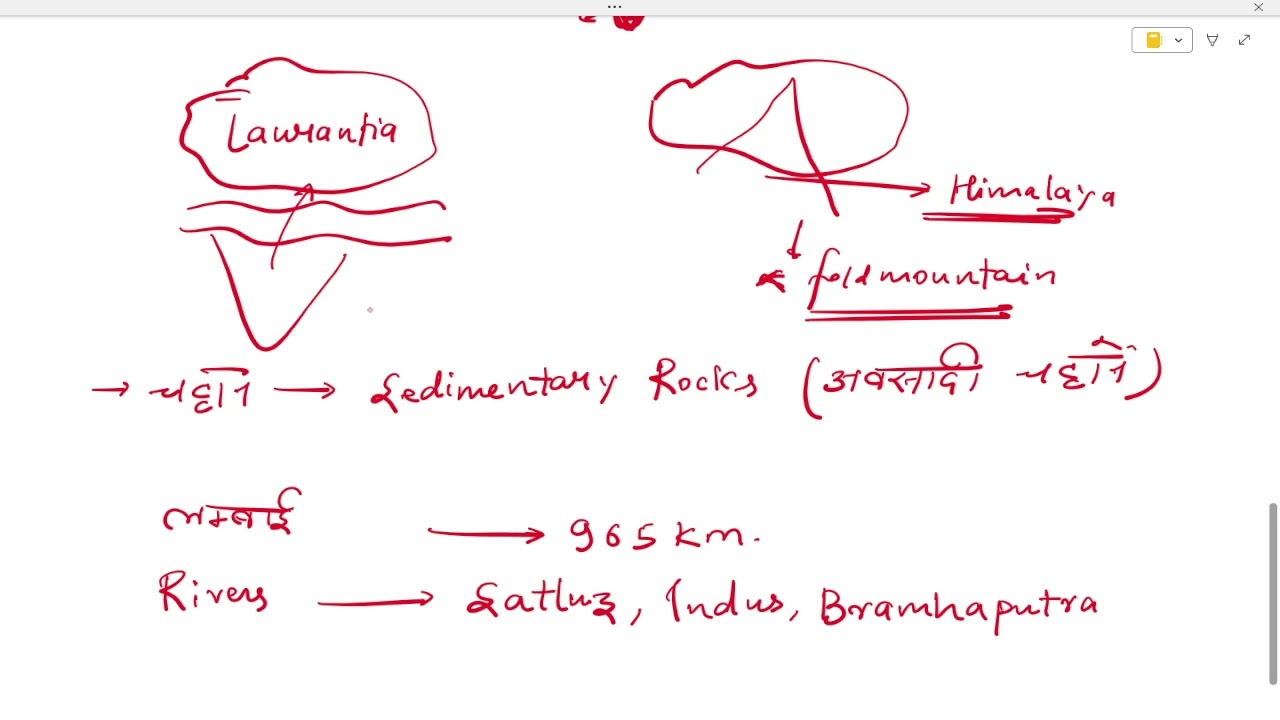 Lawrantia
Himalaya
foldmountain
→ चट्टान → Sedimentary Rocks (अवसादी चट्टानें)
लम्बाई → 965 km.
Rivers → Satluz, Indus, Bramhaputra